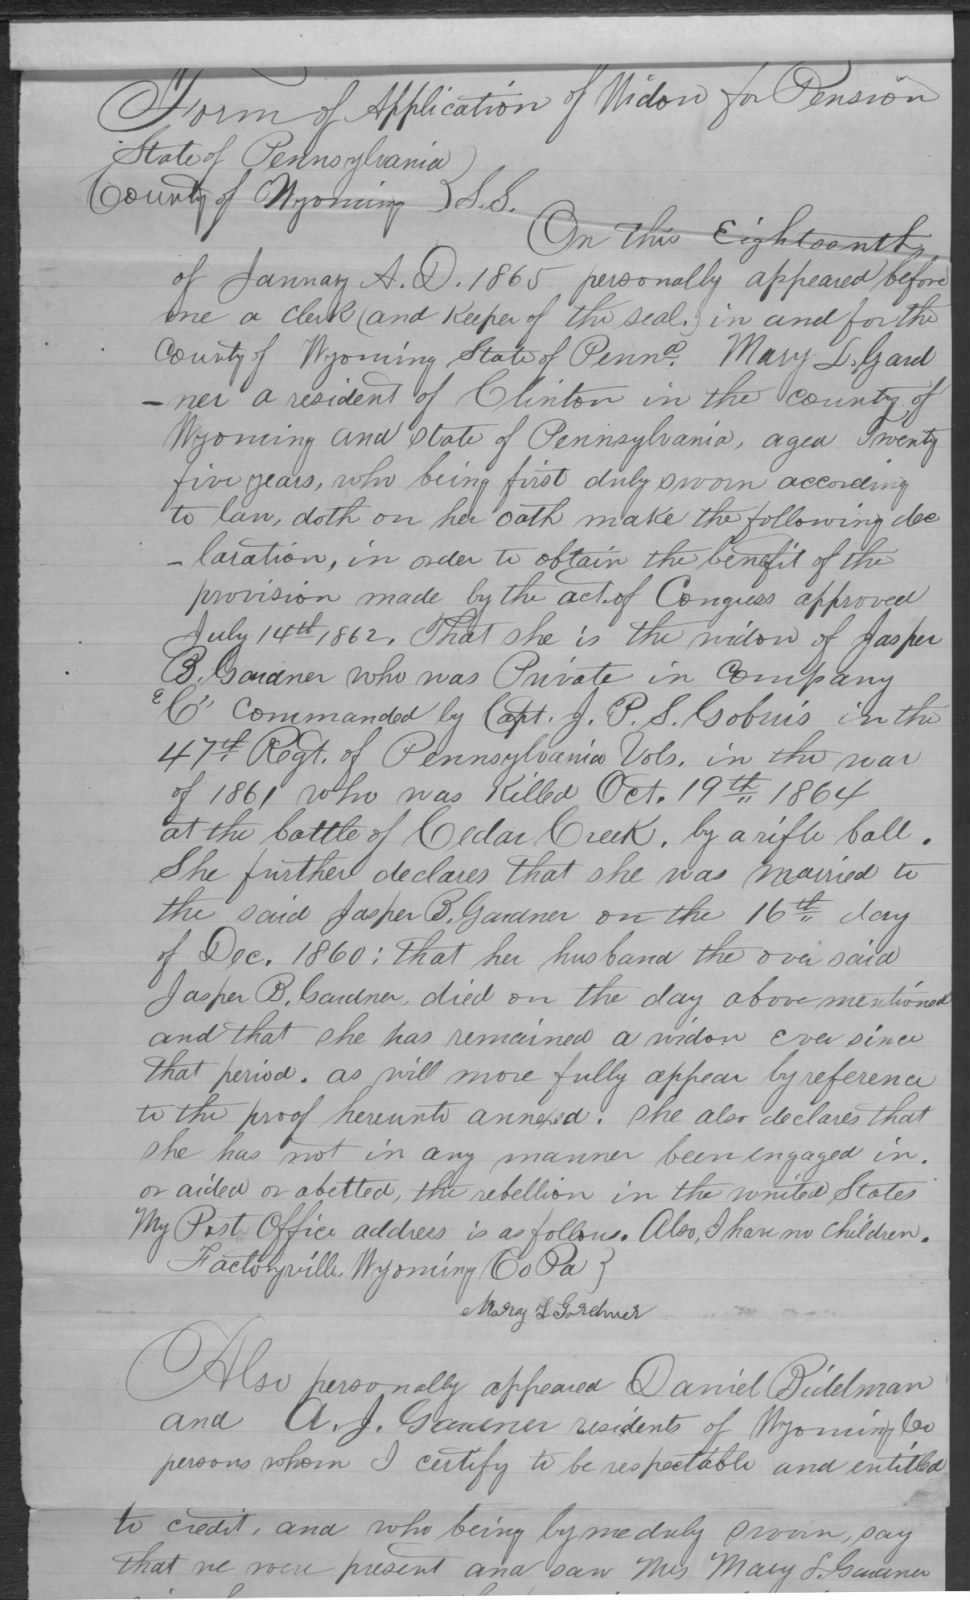 Form of Application of Widow for Pension
State of Pennsylvania }
County of Wyoming } S.S.
On this Eighteenth
of January A.D. 1865 personally appeared before
me a clerk (and keeper of the seal.) in and for the
County of Wyoming State of Penna. Mary L. Gard
-ner a resident of Clinton in the county of
Wyoming and State of Pennsylvania, aged Twenty
five years, who being first duly sworn according
to law, doth on her oath make the following dec
-laration, in order to obtain the benefit of the
provision made by the act of Congress approved
July 14th 1862. That she is the widow of Jasper
B. Gardner who was Private in Company
"C" commanded by Capt. J. P. S. Gobuis in the
47th Regt. of Pennsylvania Vols. in the war
of 1861 who was Killed Oct. 19th 1864
at the battle of Cedar Creek, by a rifle ball.
She further declares that she was married to
the said Jasper B. Gardner on the 16th day
of Dec. 1860: that her husband the over said
Jasper B. Gardner, died on the day above mentioned
and that she has remained a widow ever since
that period. as will more fully appear by reference
to the proof hereunto annexed. She also declares that
she has not in any manner been engaged in.
or aided or abetted, the rebellion in the united States
My Post Office address is as follows. Also, I have no children.
Factoryville, Wyoming Co Pa }
Mary L Gardner
Also personally appeared Daniel Bidelman
and A. J. Gardner residents of Wyoming Co
persons whom I certify to be respectable and entitled
to credit, and who being by me duly sworn, say
that we were present and saw Mrs Mary L. Gardner